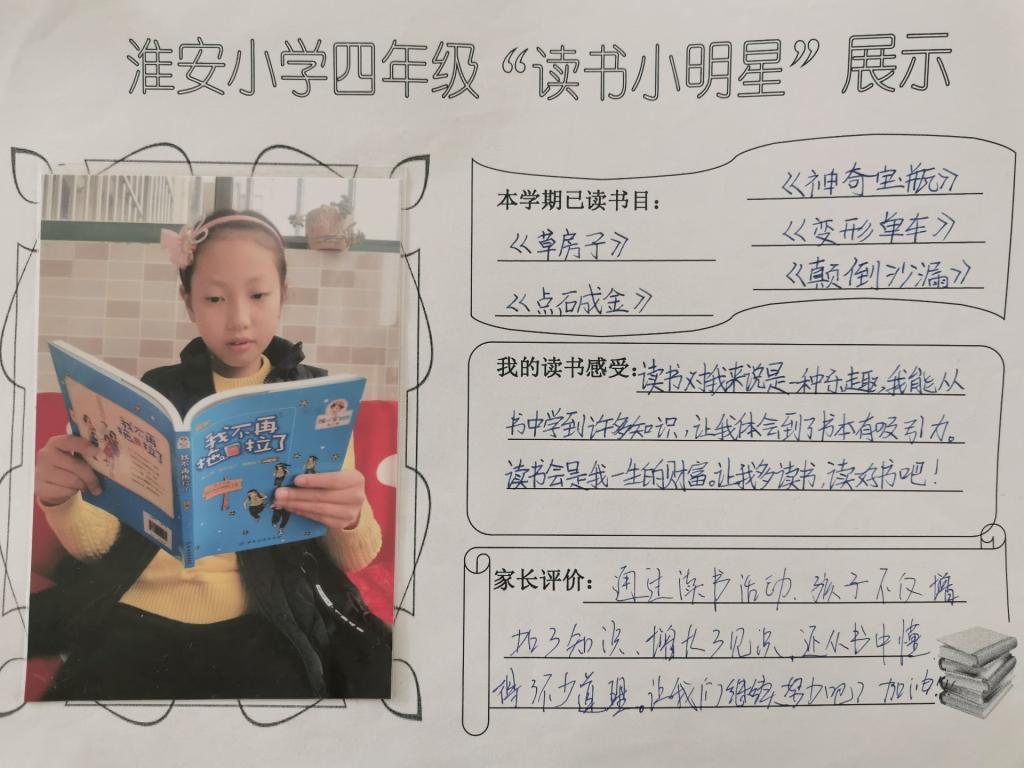 淮安小学四年级“读书小明星”展示
本学期已读书目：
《草房子》
《点石成金》
《神奇宝瓶》
《变形单车》
《颠倒沙漏》
我的读书感受：读书对我来说是一种乐趣，我能从
书中学到许多知识，让我体会到了书本有吸引力。
读书会是我一生的财富。让我多读书，读好书吧！
家长评价：通过读书活动、孩子不仅增
加了知识、增长了见识，还从书中懂
得了不少道理。让我们继续努力吧！加油
我不再
拖拉了
我不再
拖拉了
我不再拖拉了